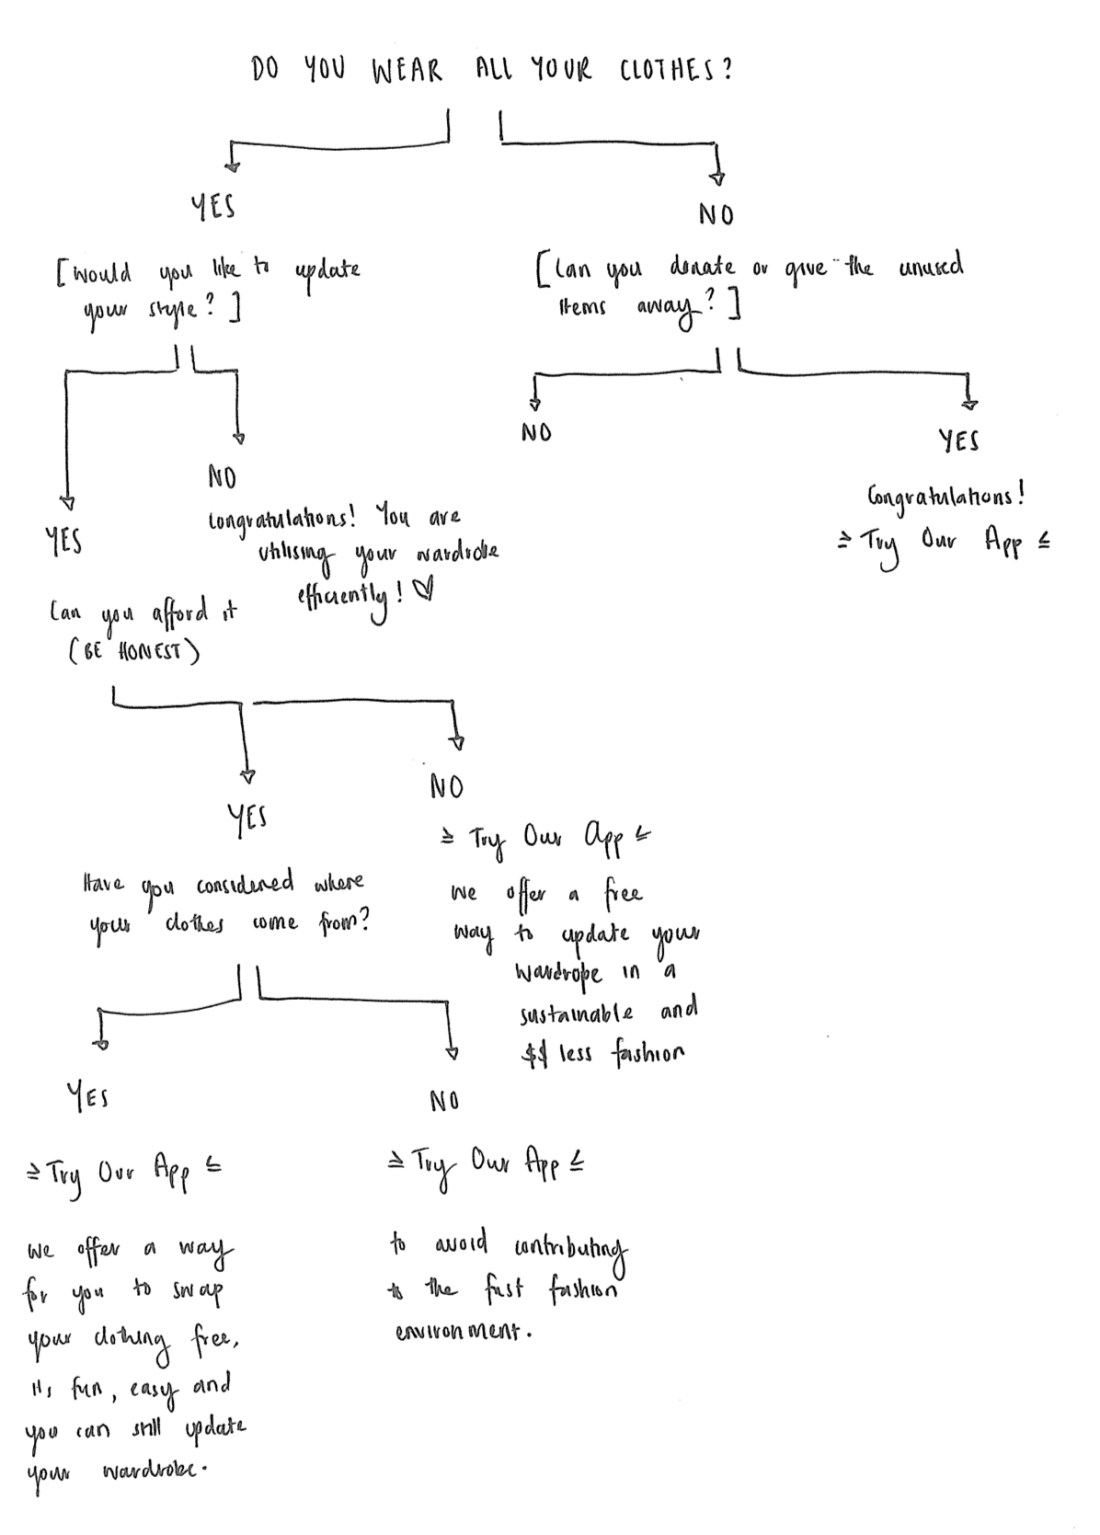 DO YOU WEAR ALL YOUR CLOTHES?
YES
NO
[Would you like to update
your style?]
[Can you donate or give the unused
items away?]
NO
YES
NO
YES
Congratulations!
Try Our App
Congratulations! You are
utilising your wardrobe
efficiently!
YES
Can you afford it
(BE HONEST)
YES
NO
Try Our App
We offer a free
way to update your
wardrope in a
sustainable and
$$ less fashion
Have you considered where
your clothes come from?
YES
NO
Try Our App
We offer a way
for you to swap
your clothing free,
its fun, easy and
you can still update
your wardrobe.
Try Our App
to avoid contributing
to the fast fashion
environment.